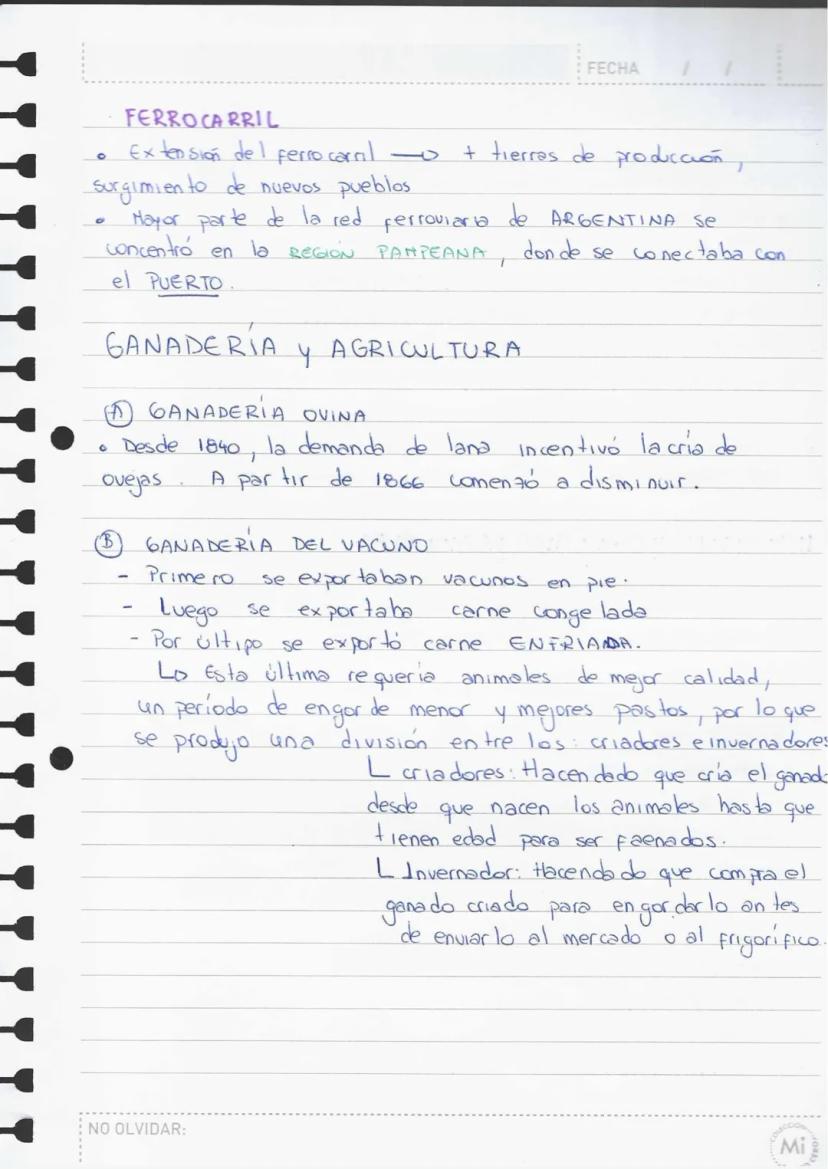 FECHA / /
FERROCARRIL
• Extensión del ferrocarril → + tierras de producción,
surgimiento de nuevos pueblos
• Mayor parte de la red ferroviaria de ARGENTINA se
concentró en la REGIÓN PAMPEANA, donde se conectaba con
el PUERTO.
GANADERÍA y AGRICULTURA
Ⓐ GANADERÍA OVINA
• Desde 1840, la demanda de lana incentivó la cría de
ovejas. A partir de 1866 comenzó a disminuir.
Ⓑ GANADERÍA DEL VACUNO
- Primero se exportaban vacunos en pie.
- Luego se exportaba carne congelada
- Por últipo se exportó carne ENFRIADA.
↳ Esta última requería animales de mejor calidad,
un período de engorde menor y mejores pastos, por lo que
se produjo una división entre los: criadores e invernadores
L criadores: Hacendado que cría el ganado
desde que nacen los animales hasta que
tienen edad para ser faenados.
L Invernador: Hacendado que compra el
ganado criado para engordarlo antes
de enviarlo al mercado o al frigorífico.
NO OLVIDAR:
Mi